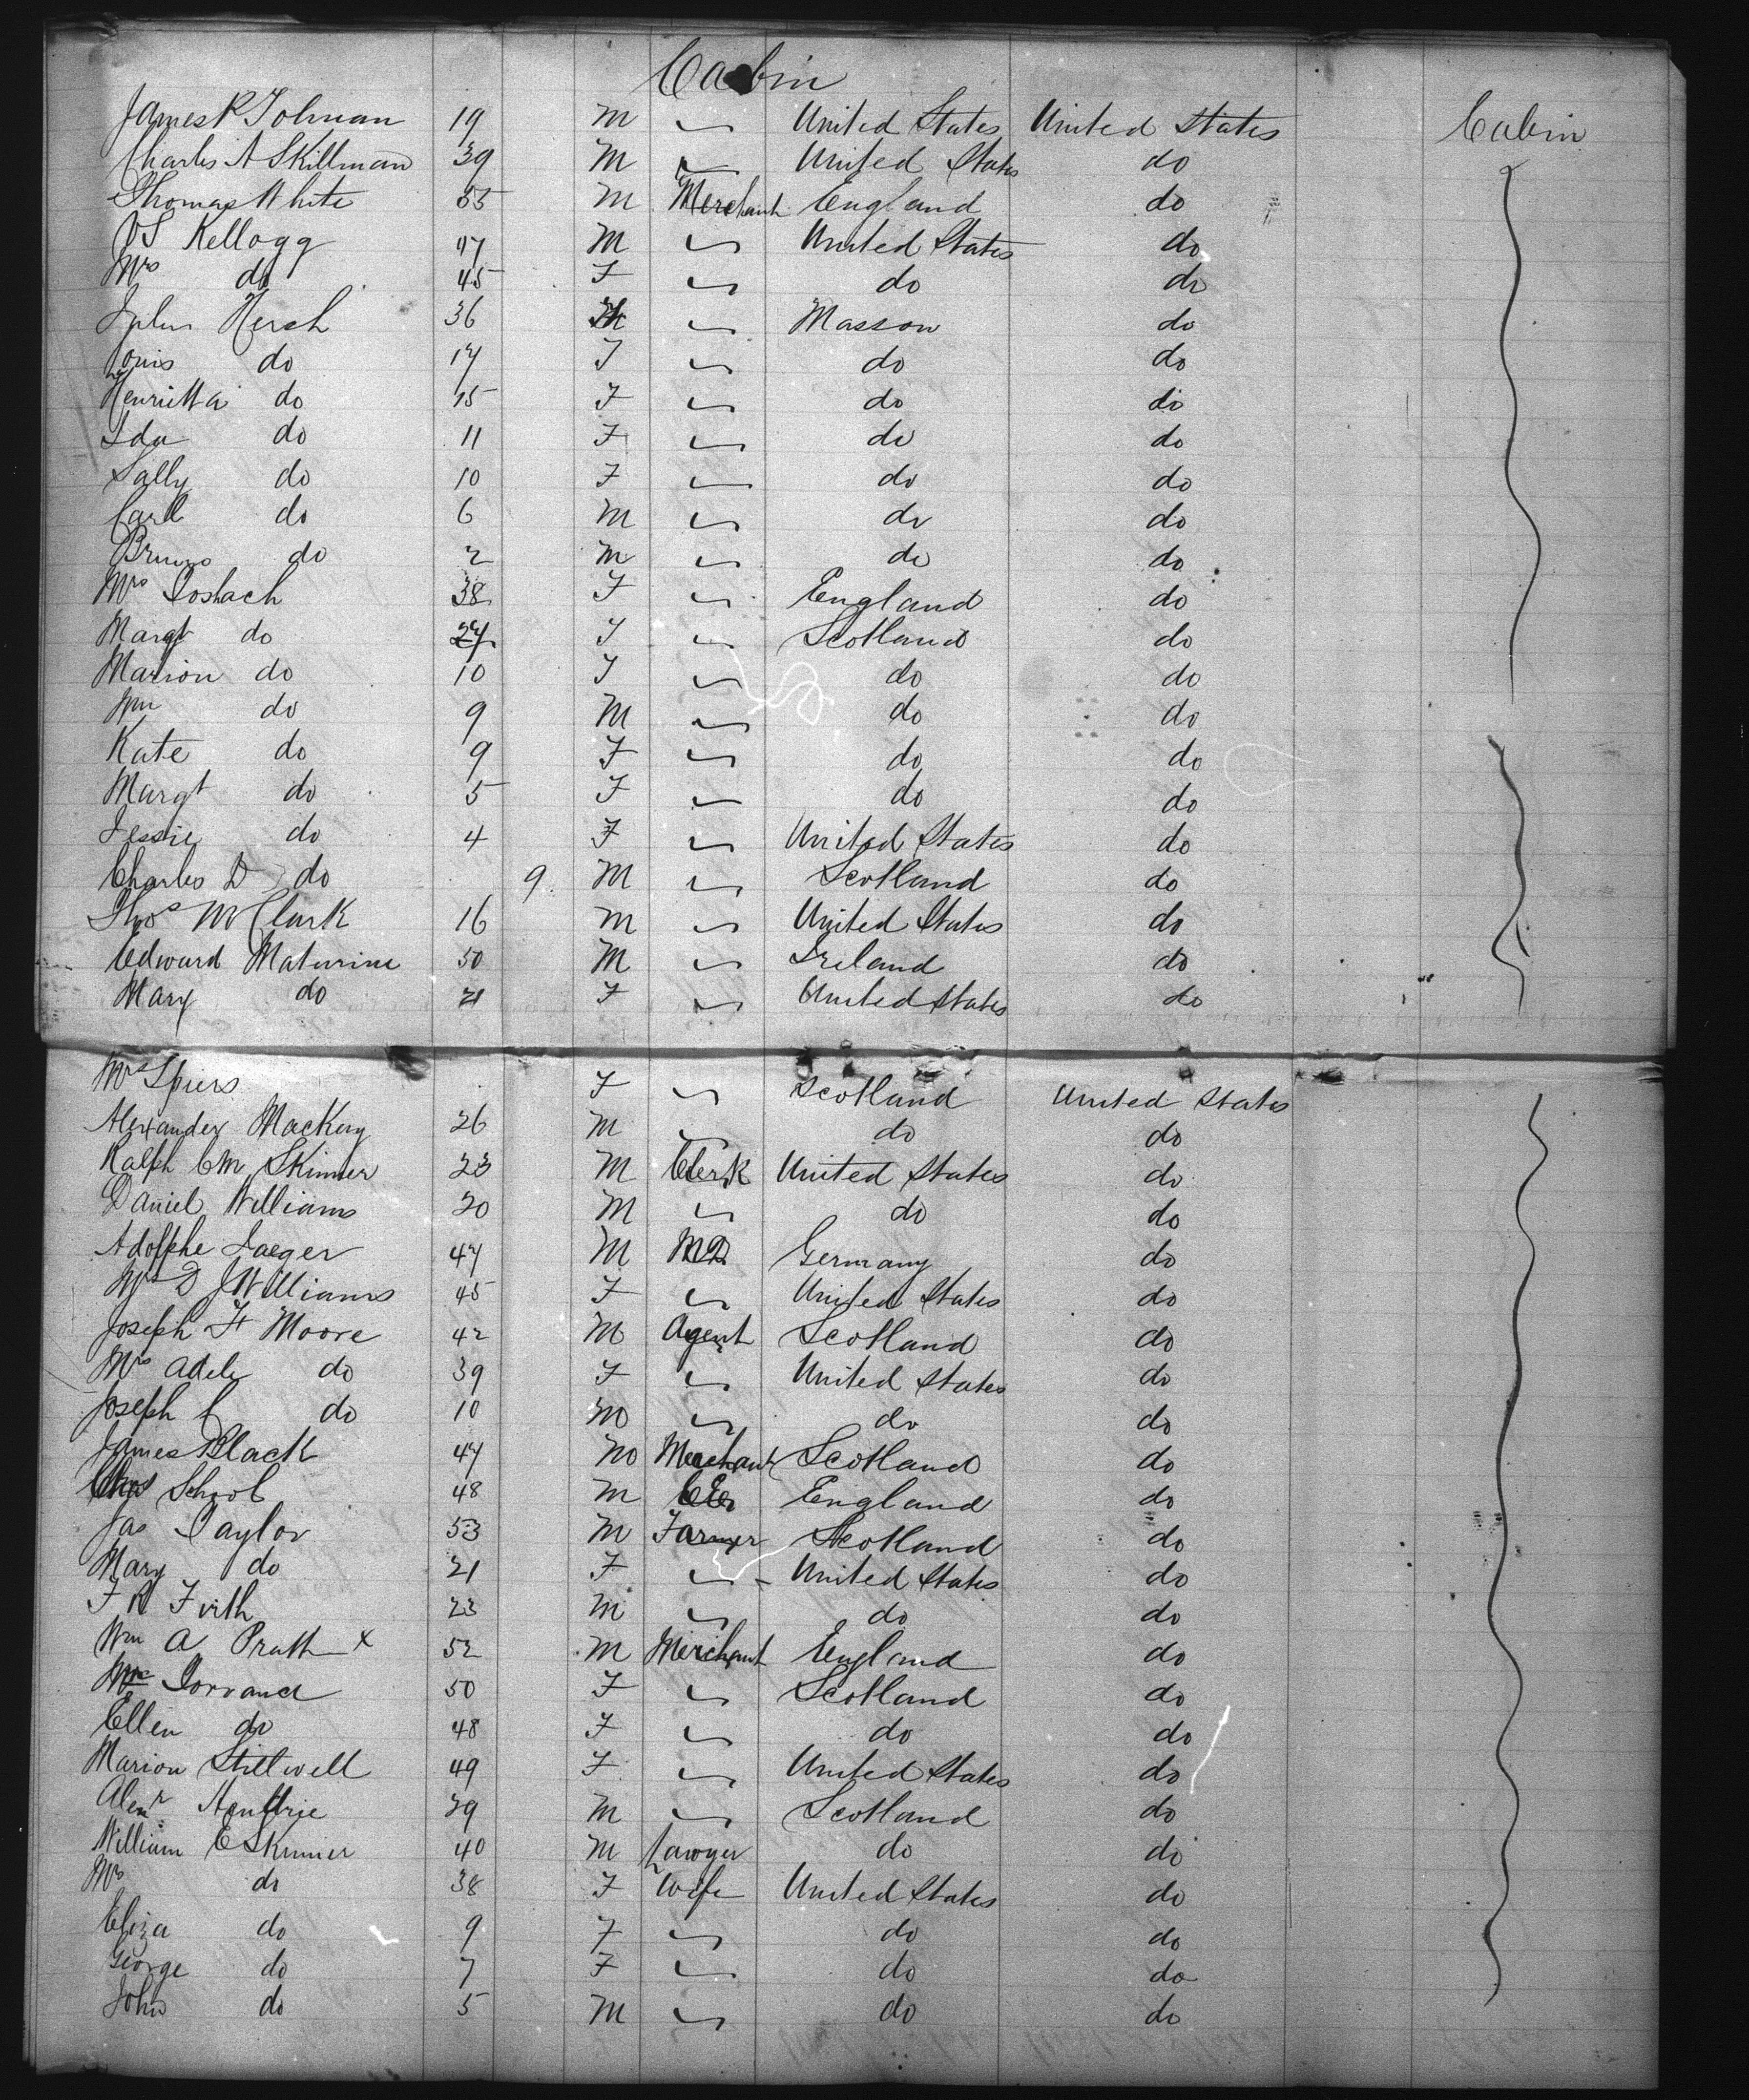 Cabin
James R Tolman 19 M United States United States Cabin
Charles A Skillman 39 M United States do
Thomas White 55 M Merchant England do
Kellogg 47 M United States do
Mrs do 45 F do do
Hersh 36 Massow do
Louis do 17 F do do
Henrietta do 15 F do do
Ida do 11 F do do
Sally do 10 F do do
Carl do 6 M do do
Bruno do 2 M do do
Mrs 38 F England do
Margt do F Scotland do
Marion do 10 F do do
Wm do 9 M do do
Kate do 9 F do do
Margt do 5 F do do
Jessie do 4 F United States do
Charles D do 9 M Scotland do
Thos M Clark 16 M United States do
Edward Maturine 50 M Ireland do
Mary do 21 F United States do
Mrs Spiers F Scotland United States
Alexander Mackay 26 M do do
Ralph C M Skinner 23 M Clerk United States do
Daniel Williams 20 M do do
Adolphe Jaeger 47 M MD Germany do
Mrs D J Williams 45 F United States do
Joseph F Moore 42 M Agent Scotland do
Mrs Adele do 39 F United States do
Joseph C do 10 M do do
James Black 47 M Merchant Scotland do
Chas School 48 M England do
Jas Taylor 53 M Farmer Scotland do
Mary do 21 F United States do
F R Firth 23 M do do
Wm A Pratt x 52 M Merchant England do
Mrs Torrance 50 F Scotland do
Ellen do 48 F do do
Marion Stillwell 49 F United States do
Alexr Hendrie 39 M Scotland do
William E Skinner 40 M Lawyer do do
Mrs do 38 F Wife United States do
Eliza do 9 F do do
George do 7 F do do
John do 5 M do do